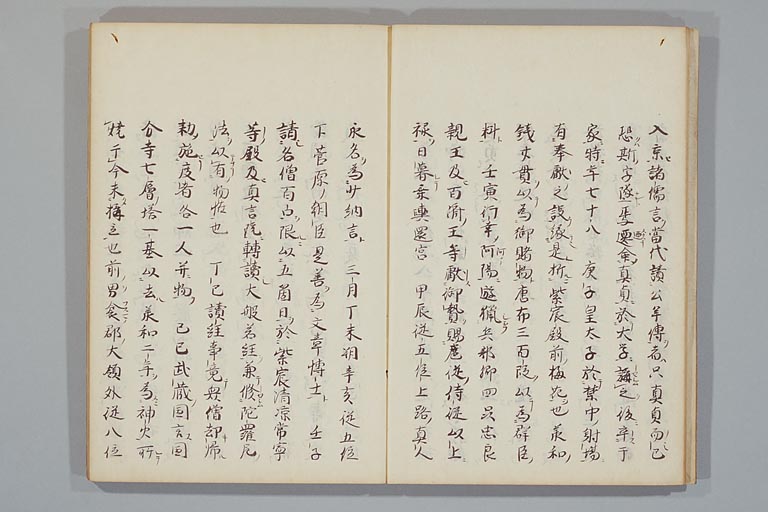 入京諸儒言當代讀公羊傳者只真貞而已
恐斯字墜更命真貞於大学講之後卒于
家時年七十八　庚子皇太子於禁中射場
有奉獻之設縁是折紫宸殿前梅花也承和
錢廿貫以為御賭物唐布三百段以為群臣
料　壬寅行幸阿陽遊獵兵部卿四品忠良
親王及百濟王等獻御贄賜扈從侍従以上
禄日暮乘輿還宮　甲辰従五位上路真人
永名為少納言　三月丁未朔辛亥従五位
下菅原朝臣是善為文章博士　壬子
請名僧百口限以五箇日於紫宸清凉常寧
等殿及真言院轉讀大般若經兼修陀羅尼
法以有物恠也　丁巳讀經事竟衆僧却帰
勅施度者各一人并物　己巳武蔵國言國
分寺七層塔一基以去承和二年為神火所
燒于今未搆立也前男衾郡大領外従八位